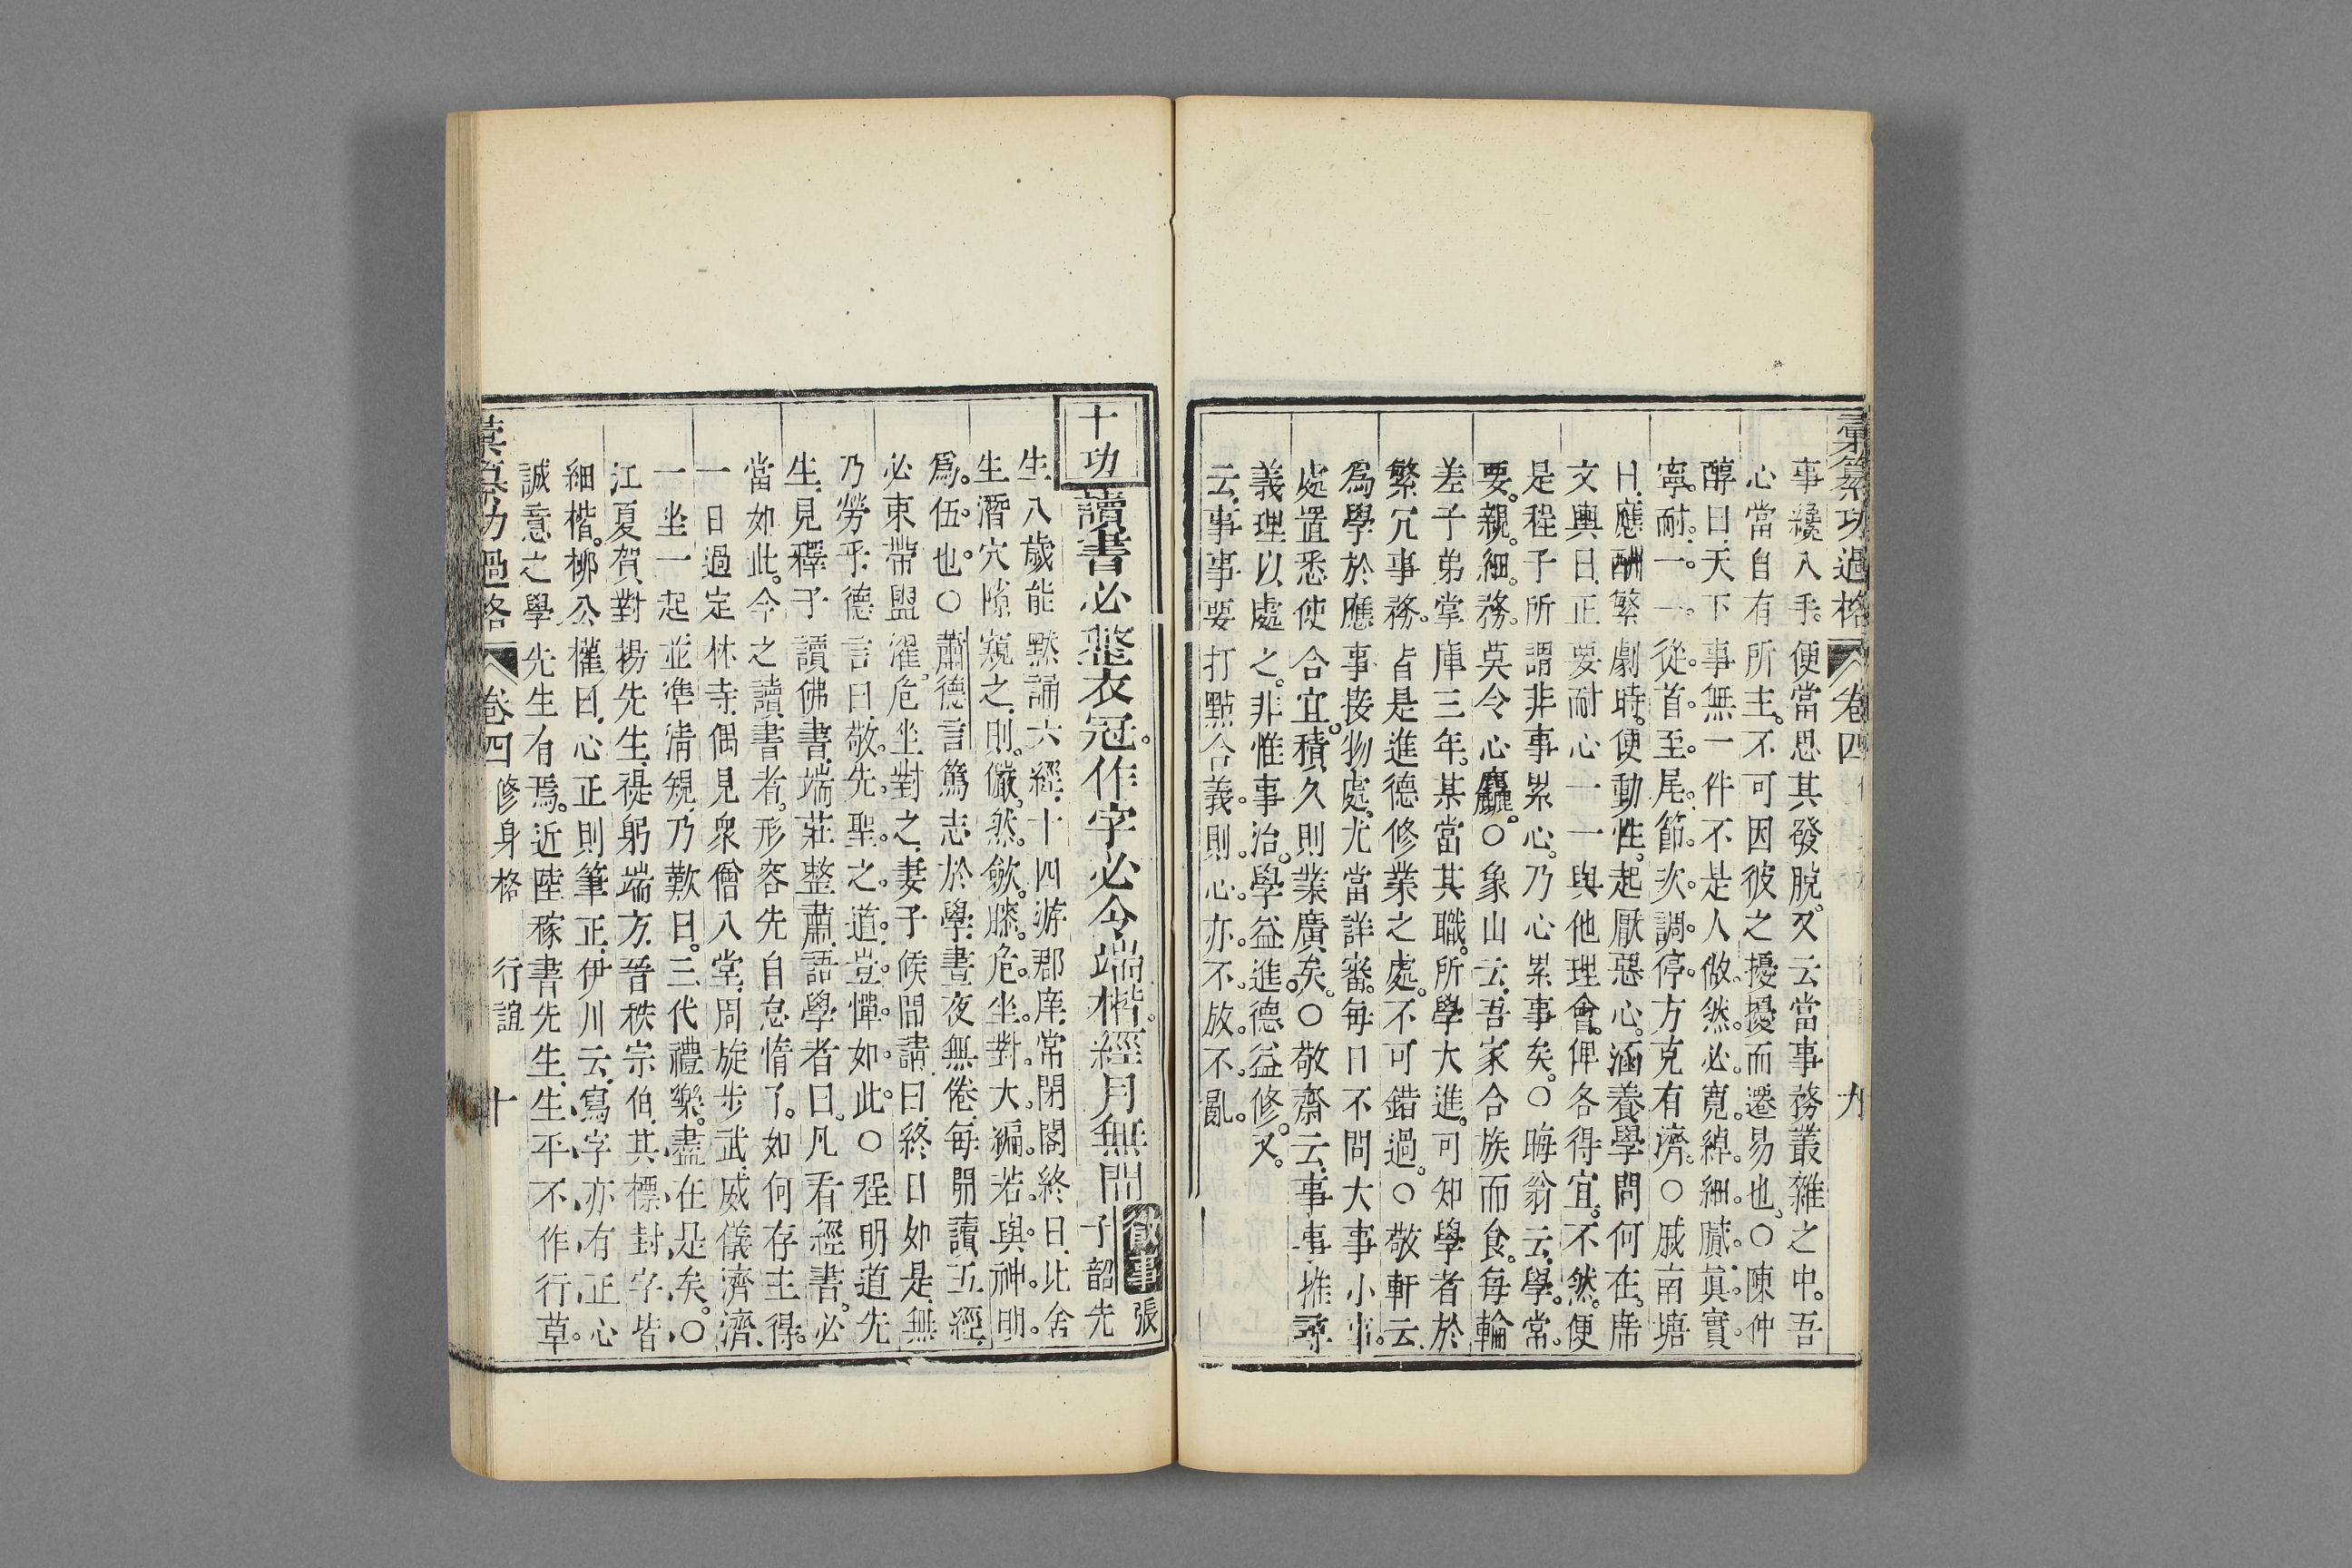 彙纂功過格 卷四 九
事纔入手。便當思其發脫。又云當事務叢雜之中。吾
心當自有所主。不可因彼之擾擾而遷易也。○陳仲
醇曰、天下事無一件不是人做。然必寬綽細膩真實。
寧。耐。一。一。從。首。至。尾。節。次。調。停。方克有濟。○戚南塘
曰、應酬繁劇時。便動性。起厭惡心。涵養學問何在。席
文輿曰、正要耐心一一與他理會。俾各得宜。不然。便
是程子所謂非事累心。乃心累事矣。○晦翁云、學。常。
要。親。細。務。莫令心麤。○象山云、吾家合族而食。每輪
差子弟掌庫三年。某當其職。所學大進。可知學者於
繁冗事務。皆是進德修業之處。不可錯過。○敬軒云、
爲學於應事接物處。尤當詳審。每日不問大事小事。
處置悉使合宜。積久則業廣矣。○敬齋云、事事推尋
義理以處之。非惟事治。學益進。德益修。又
云、事事要打點合義。則。心。亦。不。放。不。亂。
十功 讀書必整衣冠。作字必令端楷。經月無間 徵事 張子韶先
生、八歲能默誦六經、十四游郡庠、常閉閣終日、比舍
生潛穴隙窺之、則。儼。然。歛。膝。危。坐。對。大。編。若。與。神。明。
爲。伍。也。○蕭德言篤志於學、晝夜無倦、每開讀五經、
必束帶盥濯。危坐對之、妻子候間請曰、終日如是、無
乃勞乎、德言曰、敬。先。聖。之。道。豈。憚。如。此。○程明道先
生、見釋子讀佛書、端莊整肅、語學者曰、凡看經書。必
當如此。今之讀書者。形容先自怠惰了。如何存主得。
一日過定林寺、偶見衆僧入堂、周旋步武、威儀濟濟、
一坐一起、並準清規、乃歎曰。三代禮樂。盡在是矣。○
江夏賀對揚先生、禔躬端方、晉秩宗伯、其標封字皆
細楷。柳公權曰、心正則筆正、伊川云、寫字亦有正心
誠意之學、先生有焉。近陸稼書先生、生平不作行草。
彙纂功過格 卷四 修身格 行誼 十